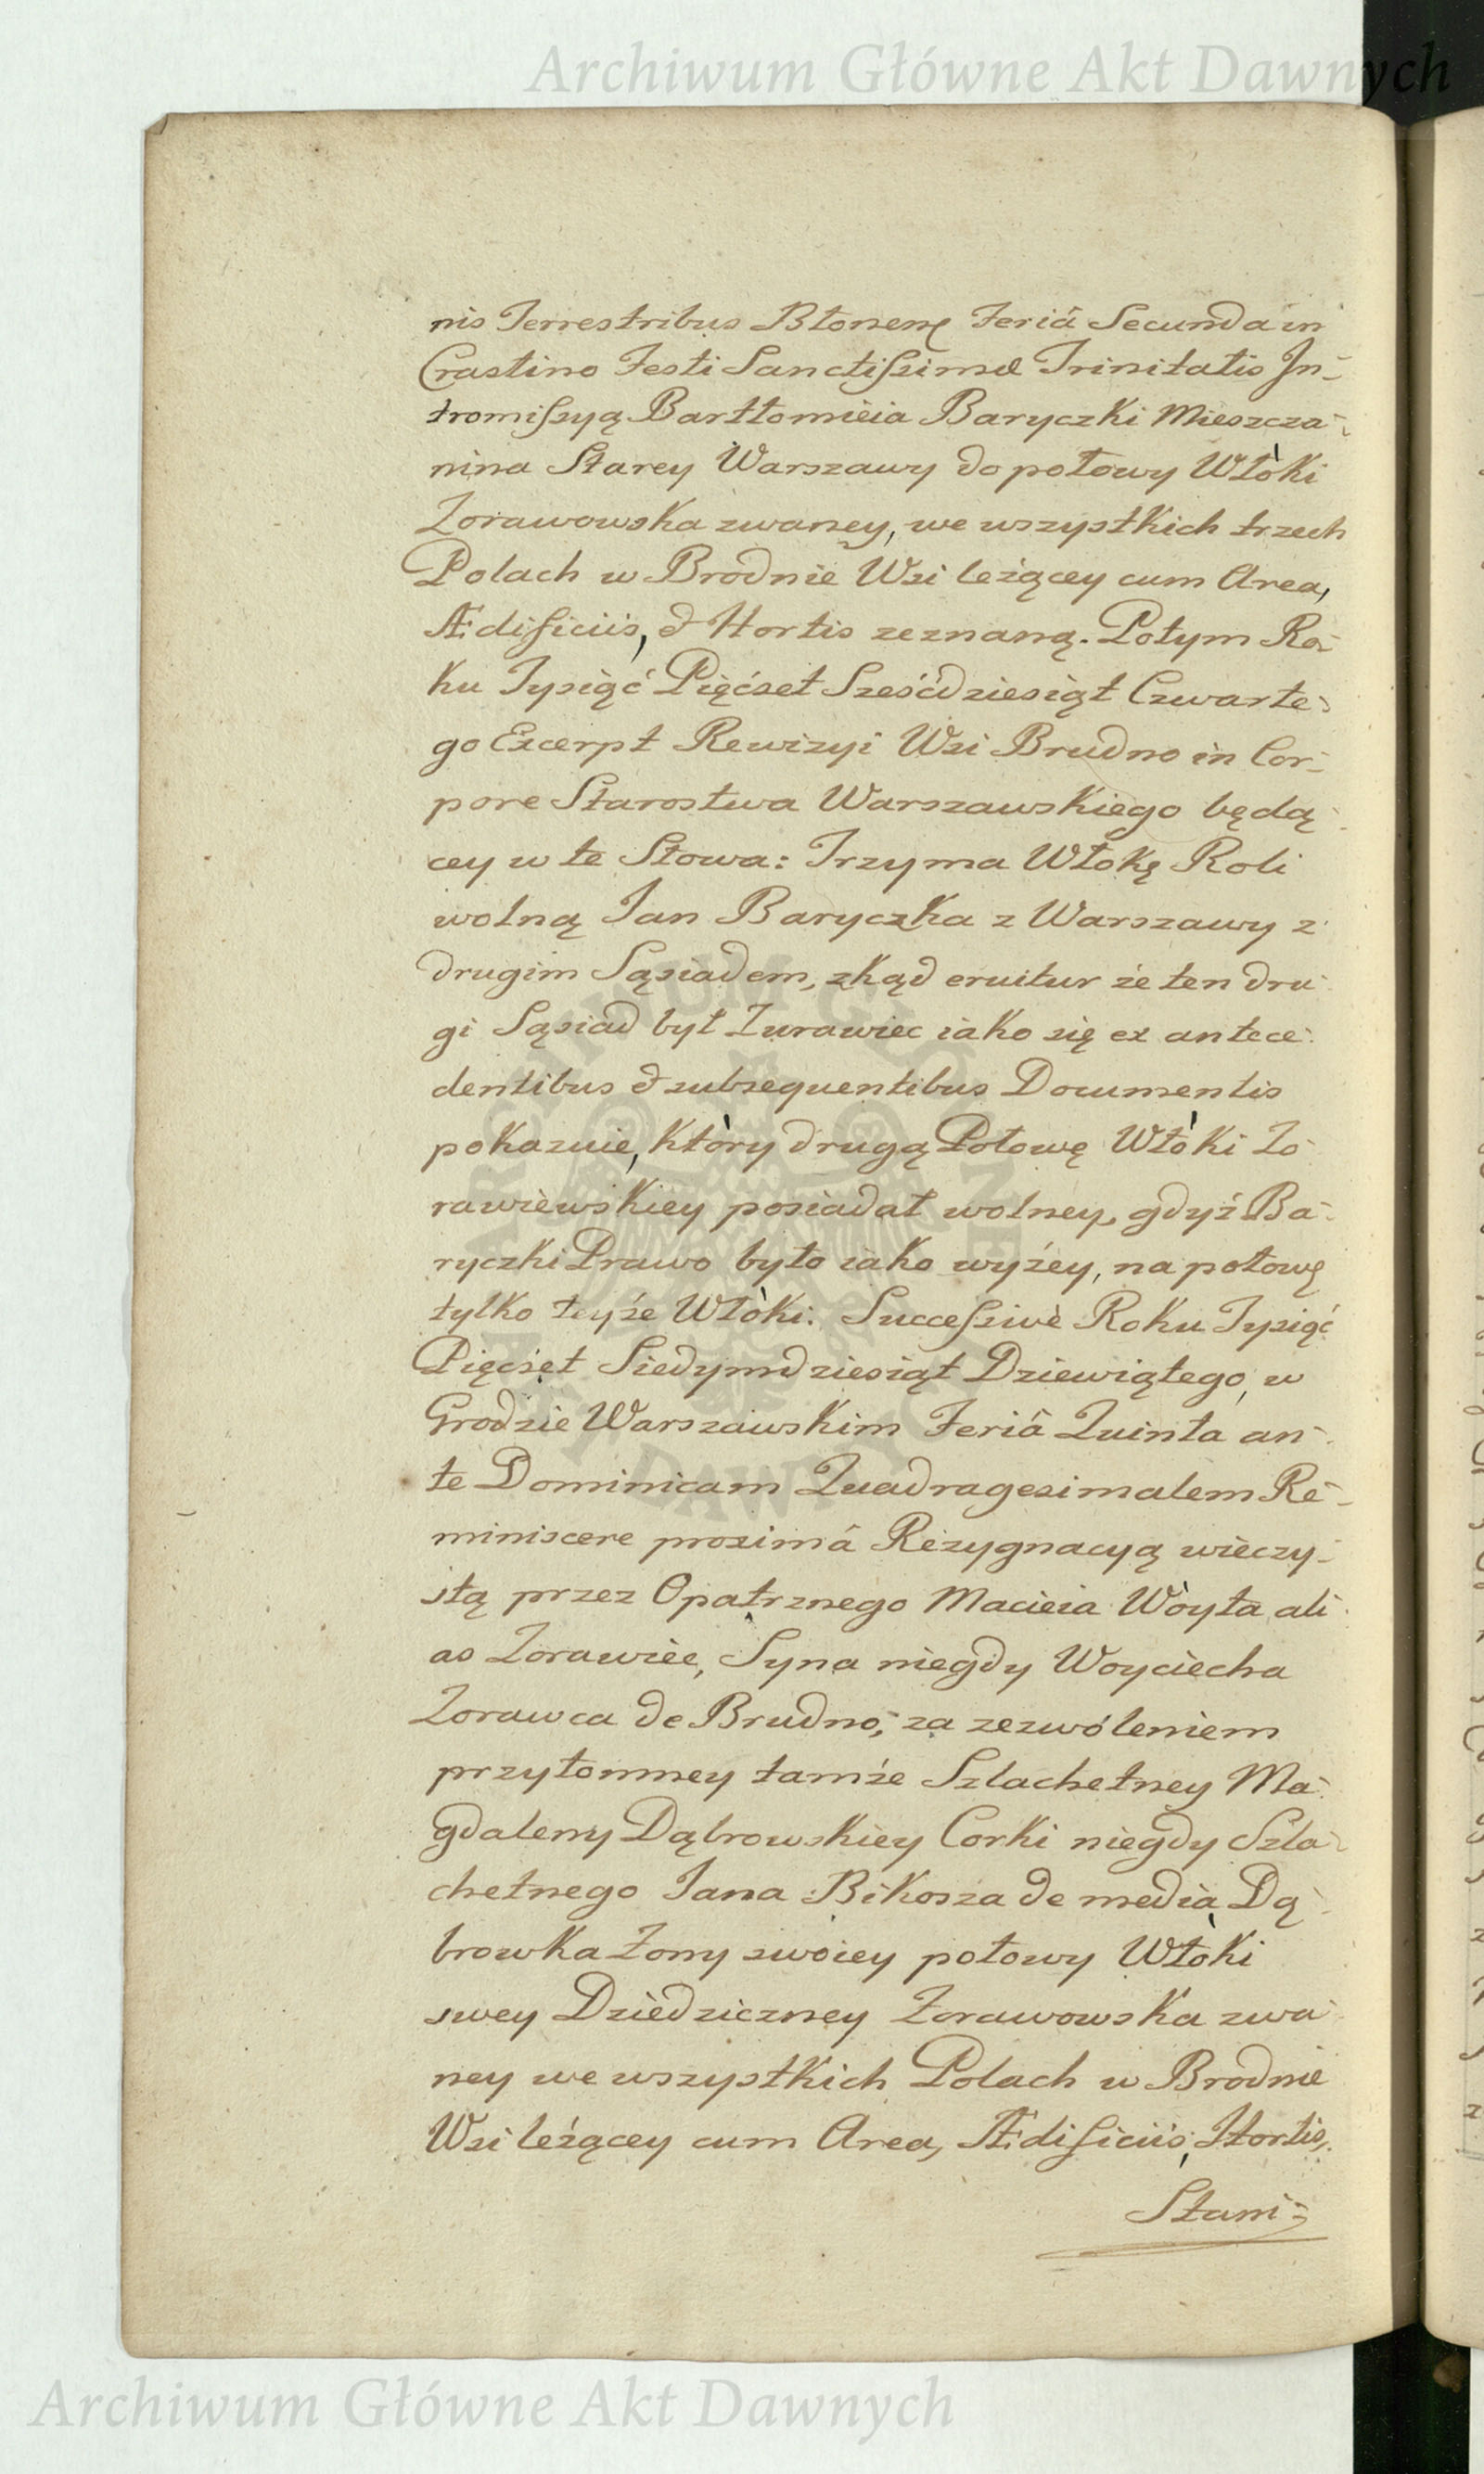 Archiwum Główne Akt Dawnych
nis Terrestribus Błonen Feriâ Secunda in
Crastino Festi Sanctiſsimæ Trinitatis In-
tromiſsyą Bartłomieia Baryczki Mieszcza-
nina Starey Warszawy do połowy Włoki
Zorawowska zwaney, we wszystkich trzech
Polach w Brodnie Wsi leżącey cum Area,
Ædificiis, & Hortis zeznaną. Potym Ro-
ku Tysiąć Pięćset Sześćdziesiąt Czwarte-
go Excerpt Rewizyi Wsi Brudno in Cor-
pore Starostwa Warszawskiego będą-
cey w te Słowa: Trzyma Włokę Roli
wolną Jan Baryczka z Warszawy z
drugim Sąsiadem, zkąd eruitur że ten dru-
gi Sąsiad był Zurawiec iako się ex antece-
dentibus & subsequentibus Documentis
pokazuie, który drugą Połowę Włóki Zo-
rawiewskiey posiadał wolney, gdyż Ba-
ryczki Prawo było iako wyżey, na połowę
tylko teyże Włóki. Succeſsivè Roku Tysiąć
Pięćset Siedymdziesiąt Dziewiątego, w
Grodzie Warszawskim Feriâ Quinta an-
te Dominicam Quadragesimalem Re-
miniscere proximâ Rezygnacyą wieczy-
stą przez Opatrznego Macieia Woyta ali-
as Zorawiec, Syna niegdy Woyciecha
Zorawca de Brudno, za zezwóleniem
przytomney tamże Szlachetney Ma-
gdaleny Dąbrowskiey Corki niegdy Szla-
chetnego Jana Bikosza de media Dą-
browka Zony swoiey połowy Włóki
swey Dziedziczney Zorawowska zwa-
ney we wszystkich Polach w Brodnie
Wsi leżącey cum Area, Ædificiis, Hortis,
Stani-
Archiwum Główne Akt Dawnych